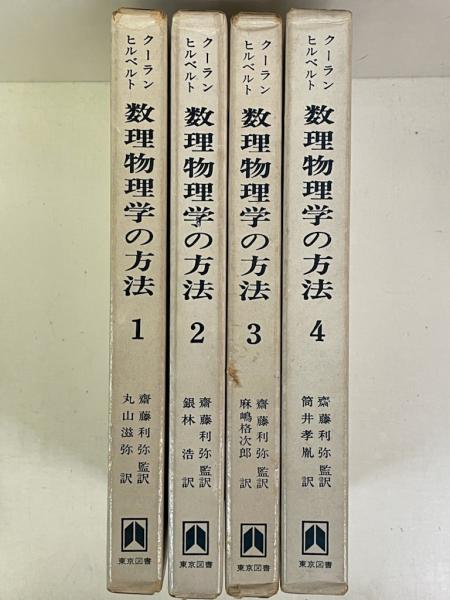 クーラン
ヒルベルト
数理物理学の方法
1
齋藤利弥 監訳
丸山滋弥 訳
東京図書
クーラン
ヒルベルト
数理物理学の方法
2
齋藤利弥 監訳
銀林浩 訳
東京図書
クーラン
ヒルベルト
数理物理学の方法
3
齋藤利弥 監訳
麻嶋格次郎 訳
東京図書
クーラン
ヒルベルト
数理物理学の方法
4
齋藤利弥 監訳
筒井孝胤 訳
東京図書